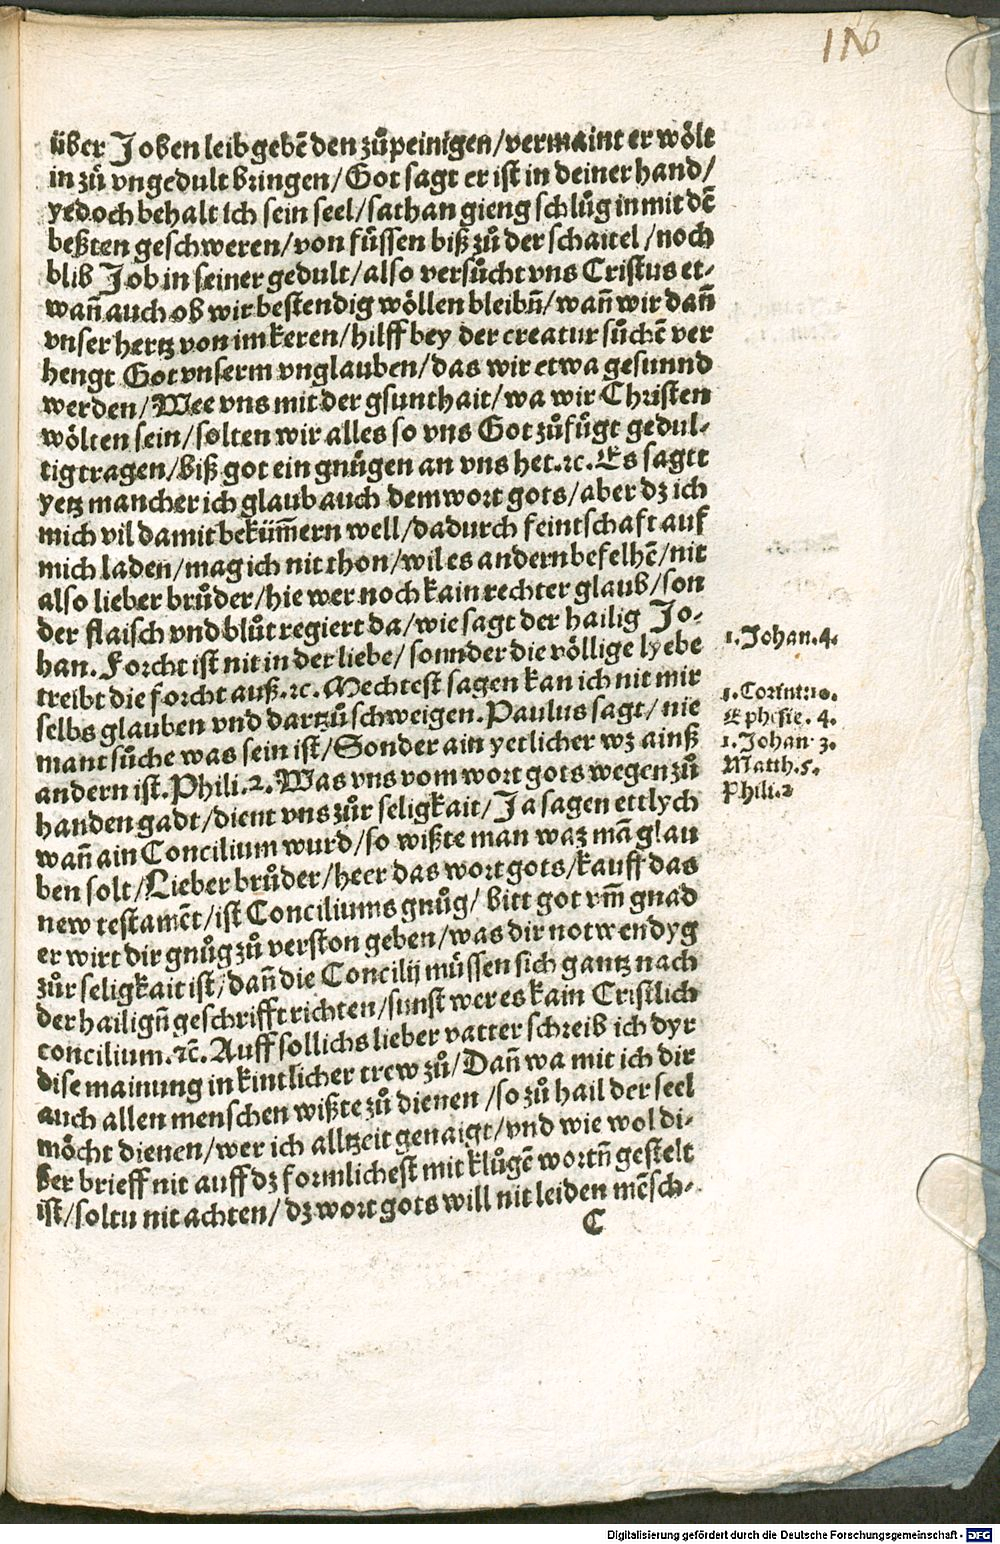 116
über Joben leib gebẽ den zůpeinigen/vermaint er wölt
in zů vngedult bringen/Got sagt er ist in deiner hand/
yedoch behalt ich sein seel/sathan gieng schlůg in mit dẽ
beßten geschweren/von füssen biß zů der schaitel/noch
blib Job in seiner gedult/also versůcht vns Cristus et-
wañ auch ob wir bestendig wöllen bleibñ/wañ wir dañ
vnser hertz von im keren/hilff bey der creatur sůchẽ ver
hengt Got vnserm vnglauben/das wir etwa gesunnd
werden/Wee vns mit der gsunthait/wa wir Christen
wölten sein/solten wir alles so vns Got zůfügt gedul-
tig tragen/biß got ein gnügen an vns het.ꝛc. Es sagtt
yetz mancher ich glaub auch dem wort gots/aber dz ich
mich vil damit beküm̃ern well/dadurch feintschaft auf
mich laden/mag ich nit thon/wil es andern befelhẽ/nit
also lieber brůder/hie wer noch kain rechter glaub/son
der flaisch vnd blůt regiert da/wie sagt der hailig Jo-
han. Forcht ist nit in der liebe/sonnder die völlige lyebe
treibt die forcht auß.ꝛc. Mechtest sagen kan ich nit mir
selbs glauben vnd dartzů schweigen. Paulus sagt/nie
mant sůche was sein ist/Sonder ain yetlicher wz ainß
andern ist. Phili.2. Was vns vom wort gots wegen zů
handen gadt/dient vns zůr seligkait/Ja sagen ettlych
wañ ain Concilium wurd/so wißte man waz mã glau
ben solt/Lieber brůder/heer das wort gots/kauff das
new testamẽt/ist Conciliums gnůg/bitt got vm̃ gnad
er wirt dir gnůg zů verston geben/was dir notwendyg
zůr seligkait ist/dañ die Concilij müssen sich gantz nach
der hailigñ geschrifft richten/sunst wer es kain Cristlich
concilium.ꝛc̃. Auff sollichs lieber vatter schreib ich dyr
dise mainung in kintlicher trew zů/Dañ wa mit ich dir
auch allen menschen wißte zů dienen/so zů hail der seel
möcht dienen/wer ich alltzeit genaigt/vnd wie wol di-
ser brieff nit auff dz formlichest mit klůgẽ wortñ gestelt
ist/soltu nit achten/dz wort gots will nit leiden mẽsch-
C
1. Johan.4.
1. Corintn:10.
Ephesie. 4.
1. Johan 3.
Matth.5.
Phili.2
Digitalisierung gefördert durch die Deutsche Forschungsgemeinschaft - DFG